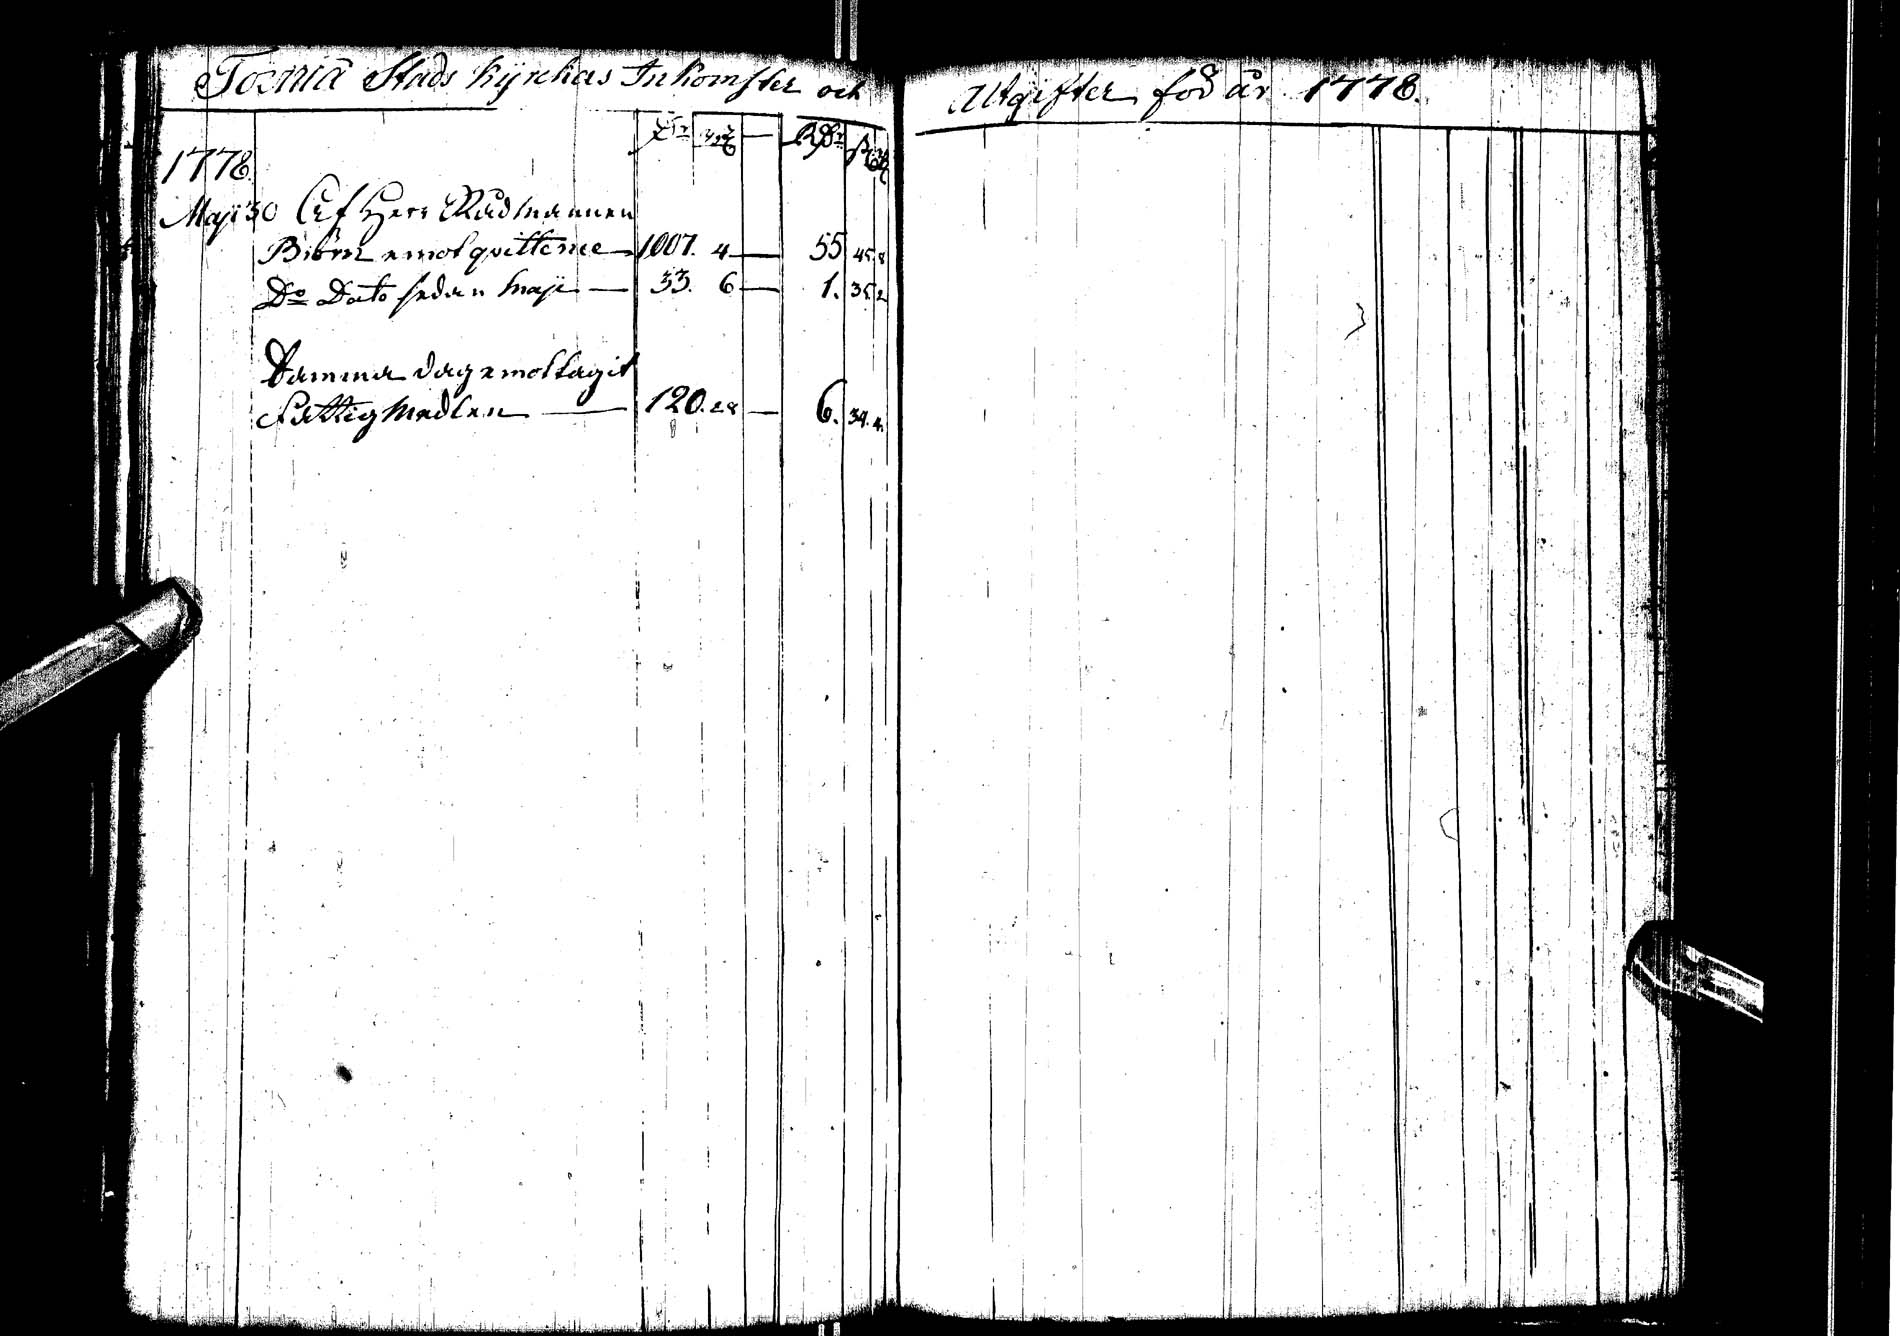 Torneå Stads kyrckas Inkomster och Utgifter för år 1778.
1778.
Maji 30 Af Herr Rådmannen
Biörn emot qvittence 1007. 4 — 55 45. 8
Do Dato sedan 33. 6 — 1. 35. 2
Samma dag emottagit
Fattig Medlen — 120. 28 — 6. 34. 4.